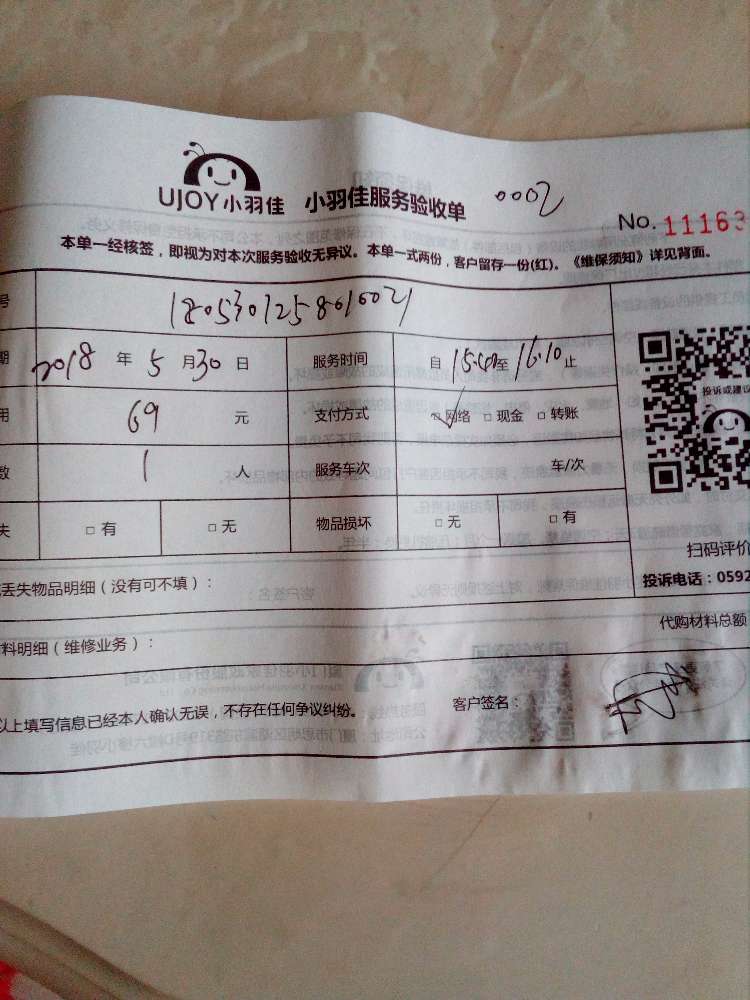 UJOY小羽佳 小羽佳服务验收单 0002
No. 11163
本单一经核签，即视为对本次服务验收无异议。本单一式两份，客户留存一份(红)。《维保须知》详见背面。
号
期 2018 年 5 月 30 日 服务时间 自 至 16:10 止
投诉或建议
用 69 元 支付方式 网络 □ 现金 □ 转账
数 1 人 服务车次 车/次
失 □ 有 □ 无 物品损坏 □ 无 □ 有
扫码评价
丢失物品明细（没有可不填）：
投诉电话：0592
料明细（维修业务）：
代购材料总额
以上填写信息已经本人确认无误，不存在任何争议纠纷。 客户签名：